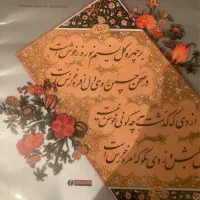 بر چهره گل نسیم نوروز خوشست
در صحن چمن روی دل افروز خوشست
از دی که گذشت هر چه گوئی خوش نیست
خوش باش ز دی مگو که امروز خوشست